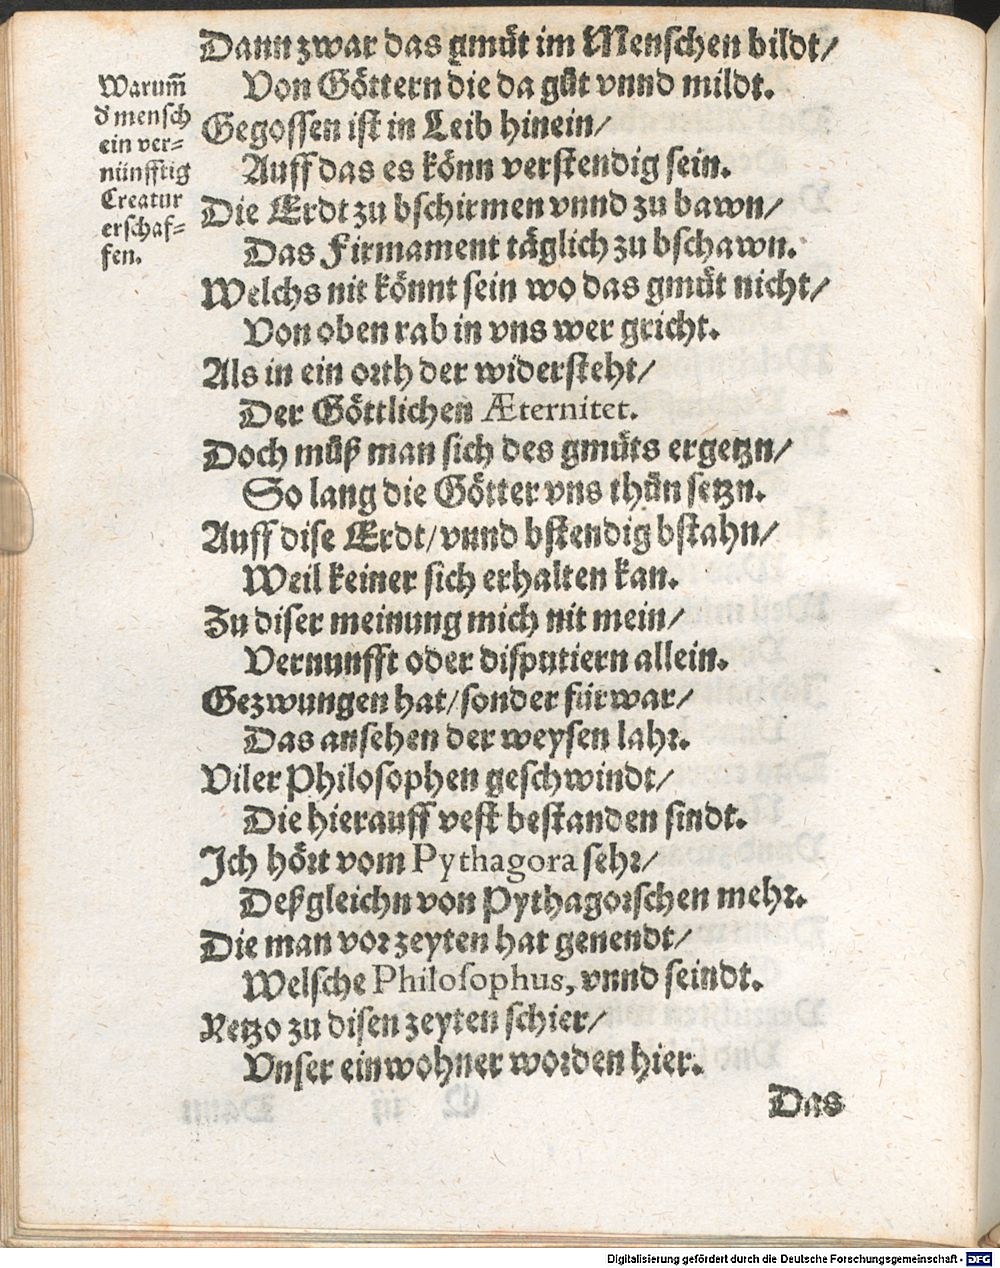 Dann zwar das gmüt im Menschen bildt/
Von Göttern die da gůt vnnd mildt.
Gegossen ist in Leib hinein/
Auff das es könn verstendig sein.
Die Erdt zu bschirmen vnnd zu bawn/
Das Firmament täglich zu bschawn.
Welchs nit könnt sein wo das gmüt nicht/
Von oben rab in vns wer gricht.
Als in ein orth der widersteht/
Der Göttlichen Æternitet.
Doch můß man sich des gmüts ergetzn/
So lang die Götter vns thůn setzn.
Auff dise Erdt/ vnnd bstendig bstahn/
Weil keiner sich erhalten kan.
Zu diser meinung mich nit mein/
Vernunfft oder disputiern allein.
Gezwungen hat/ sonder fürwar/
Das ansehen der weysen lahr.
Viler Philosophen geschwindt/
Die hierauff vest bestanden sindt.
Ich hört vom Pythagora sehr/
Deßgleichn von Pythagorschen mehr.
Die man vor zeyten hat genendt/
Welsche Philosophus, vnnd seindt.
Retzo zu disen zeyten schier/
Vnser einwohner worden hier.
Das
Warum̃
d mensch
ein ver-
nünfftig
Creatur
erschaf-
fen.
Digitalisierung gefördert durch die Deutsche Forschungsgemeinschaft - DFG